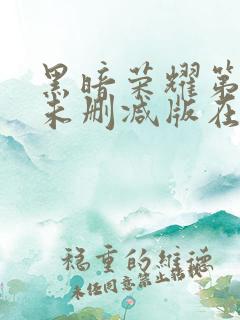 黑暗荣耀第
未删减版在
稳重的维德
未经同意禁止转载